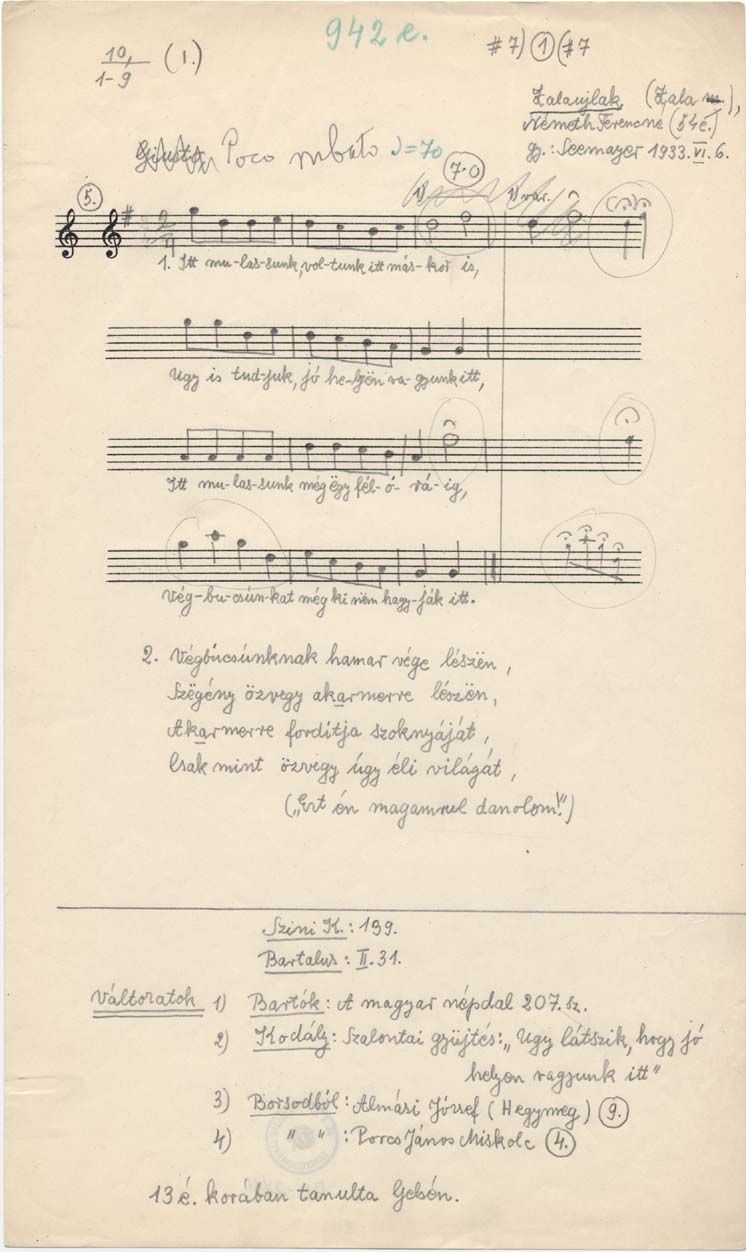 942 e.
10, (1.) #7) 1 (#7
1-9
Zalaujlak, (Zala m.),
Németh Ferencné (54 é.)
gy.: Seemayer 1933. VI. 6.
Giusto, Poco rubato ♩=70
7·0
5. 1) 1) var.
2/4
1. Itt mu-las-sunk, vol-tunk itt más-kor is,
Ugy is tud-juk, jó he-lyön va-gyunk itt,
Itt mu-las-sunk még ëgy fél-ó-rá-ig,
Vég-bu-csún-kat még ki nëm hagy-ják itt.
2. Végbúcsúnknak hamar vége lészën,
Szëgény özvegy akarmerre lészën,
Akarmerre fordítja szoknyáját,
Csak mint özvegy úgy éli világát,
(„Ezt én magamrul danolom!")
Szini K.: 139.
Bartalus: II. 31.
Változatok 1) Bartók: A magyar népdal 207. sz.
2) Kodály: Szalontai gyüjtés: „Ugy látszik, hogy jó
helyen vagyunk itt"
3) Borsodból: Almási József (Hegymeg) 9.
4) " " : Porcs János Miskolc 4.
13 é. korában tanulta Gelsén.